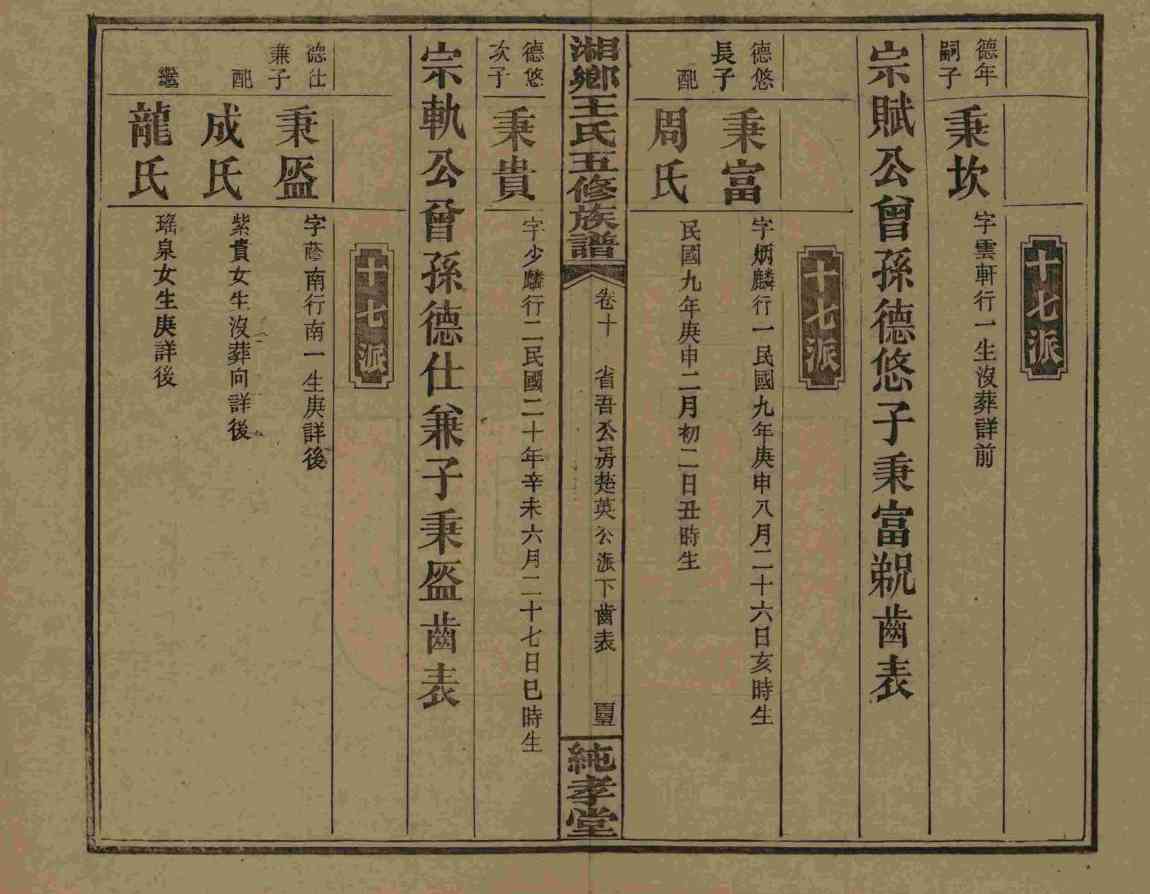 十七派
德年嗣子
秉坎
字雲軒行一生沒葬詳前
宗賦公曾孫德悠子秉富觬齒表
十七派
德悠長子
秉富
字炳麟行一民國九年庚申八月二十六日亥時生
配
周氏
民國九年庚申二月初二日丑時生
湘鄉王氏五修族譜
卷十
省吾公房楚英公派下齒表
純孝堂
德悠次子
秉貴
字少麟行二民國二十年辛未六月二十七日巳時生
宗軌公曾孫德仕兼子秉盔齒表
十七派
德仕兼子
秉盔
字蔭南行南一生庚詳後
配
成氏
紫貴女生沒葬向詳後
繼
龍氏
瑤泉女生庚詳後